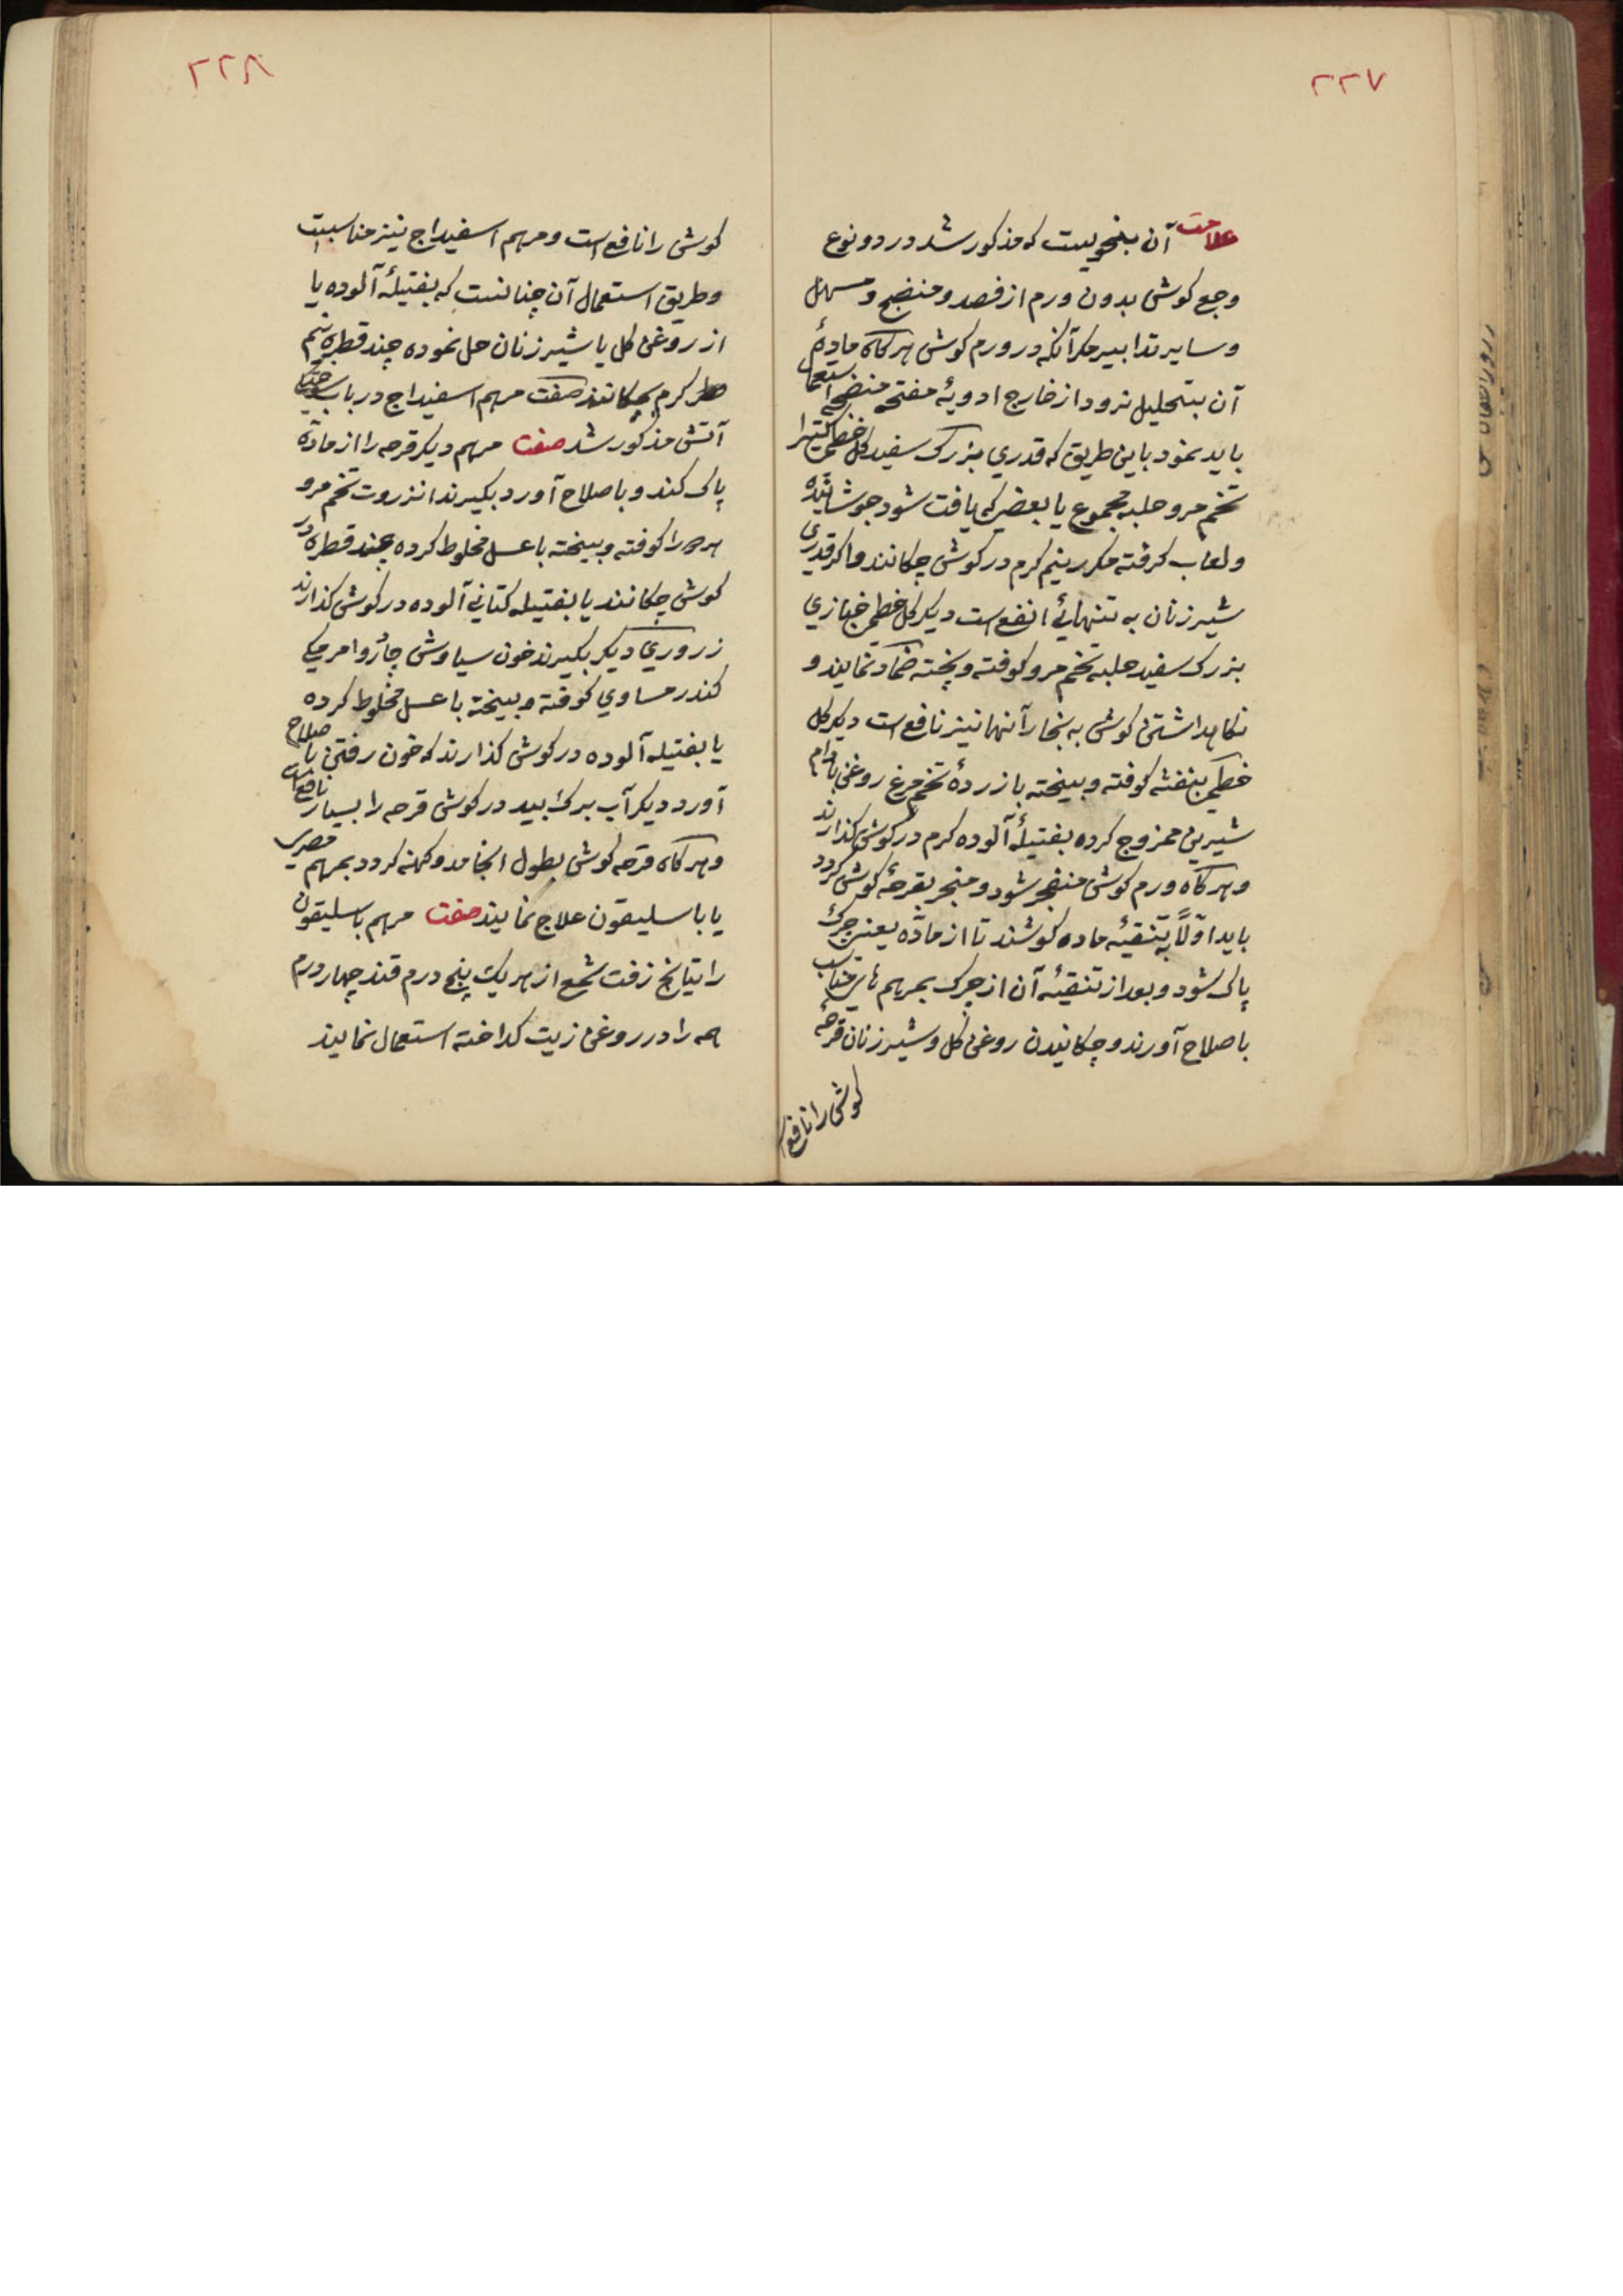 ۲۲۷
علامت آن بنحویست که مذکور شد در دو نوع
وجع کوش بدون ورم از فصد و منضج و مسهل
و سایر تدابیر مکر آنکه در ورم کوش هرکاه مادهٔ
آن بتحلیل نرود از خارج ادویهٔ مفتحه منضجه استعمال
باید نمود باین طریق که قدری بزرک سفید کل خطمی کتیرا
تخم مرو حلبه مجموع یا بعضی که یافت شود جوشانیده
و لعاب کرفته مکرر نیم کرم در کوش چکانند و اکر قدری
شیر زنان به تنهائی انفع است دیکر کل خطمی خبازی
بزرک سفید حلبه تخم مرو کوفته و پخته ضماد نمایند و
نکاهداشتن کوش به بخار آنها نیز نافع است دیکر کل
خطمی بنفشه کوفته و بیخته با زردهٔ تخم مرغ روغن بادام
شیرین ممزوج کرده بفتیلهٔ آلوده کرم در کوش کذارند
و هرکاه ورم کوش منفجر شود و منجر بقرحهٔ کوش کردد
باید اوّلاً بتنقیهٔ ماده کوشند تا از مادّه یعنی چرک
پاک شود و بعد از تنقیهٔ آن از چرک بمرهم های مناسب
باصلاح آورند و چکانیدن روغن کل و شیر زنان قرحهٔ
کوش را نافع
۲۲۸
کوش را نافع است و مرهم اسفیداج نیز مناسبست
و طریق استعمال آن چنانست که بفتیلهٔ آلوده یا
از روغن کل یا شیر زنان حل نموده چند قطره نیم
کرم بچکانند صفت مرهم اسفیداج در باب سوختن
آتش مذکور شد صفت مرهم دیکر قرحه را از مادّه
پاک کند و باصلاح آورد بکیرند انزروت تخم مرو
هر دو را کوفته و بیخته با عسل مخلوط کرده چند قطره در
کوش چکانند یا بفتیله کتانی آلوده در کوش کذارند
زروری دیکر بکیرند خون سیاوش جاؤ وا مرمکی
کندر مساوی کوفته و بیخته با عسل مخلوط کرده
یا بفتیله آلوده در کوش کذارند که خون رفتن باصلاح
آورد دیکر آب برک بید در کوش قرحه را بسیار نافع است
و هرکاه قرحه کوش بطول انجامد و کهنه کردد بمرهم مصری
یا باسلیقون علاج نمایند صفت مرهم باسلیقون
راتیانج زفت شمع از هر یک پنج درم قند چهار درم
همه را در روغن زیت کداخته استعمال نمایند